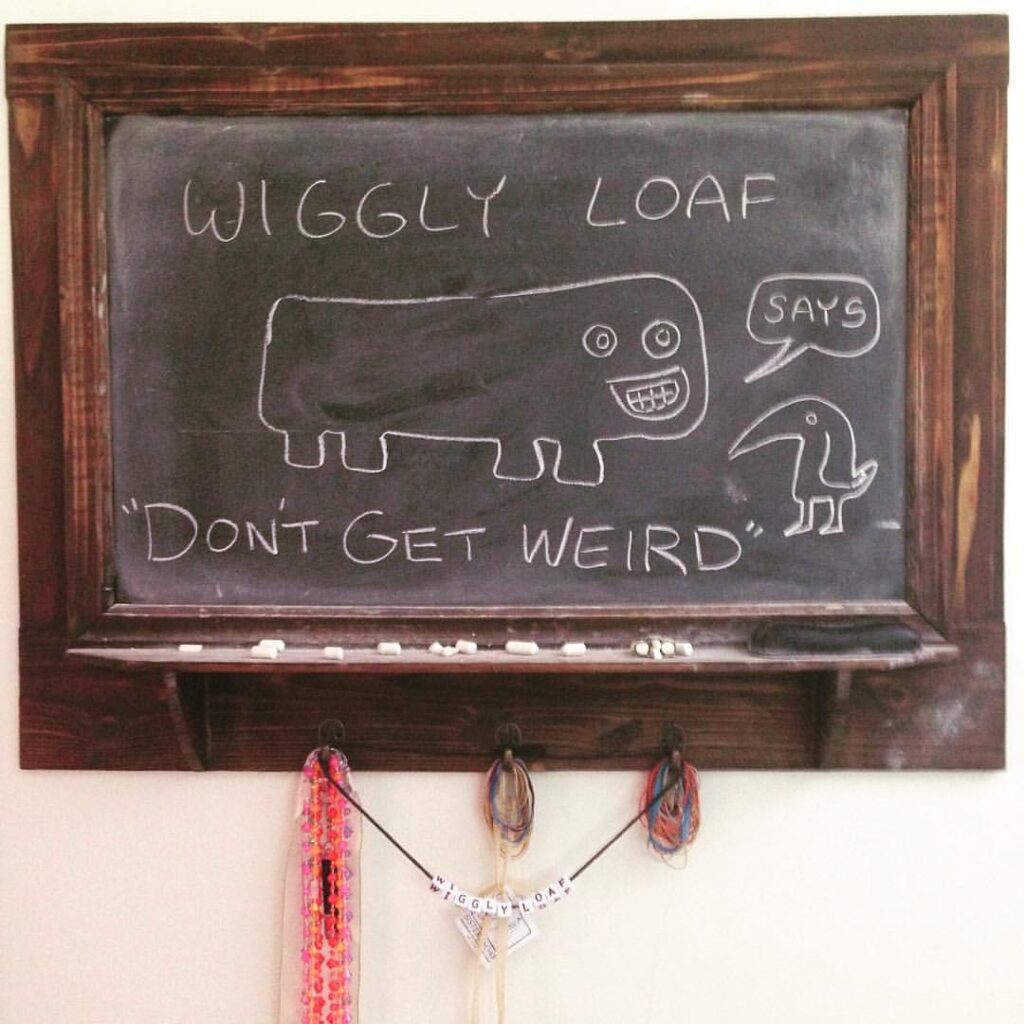 WIGGLY LOAF
SAYS
"DON'T GET WEIRD"
WIGGLY LOAF